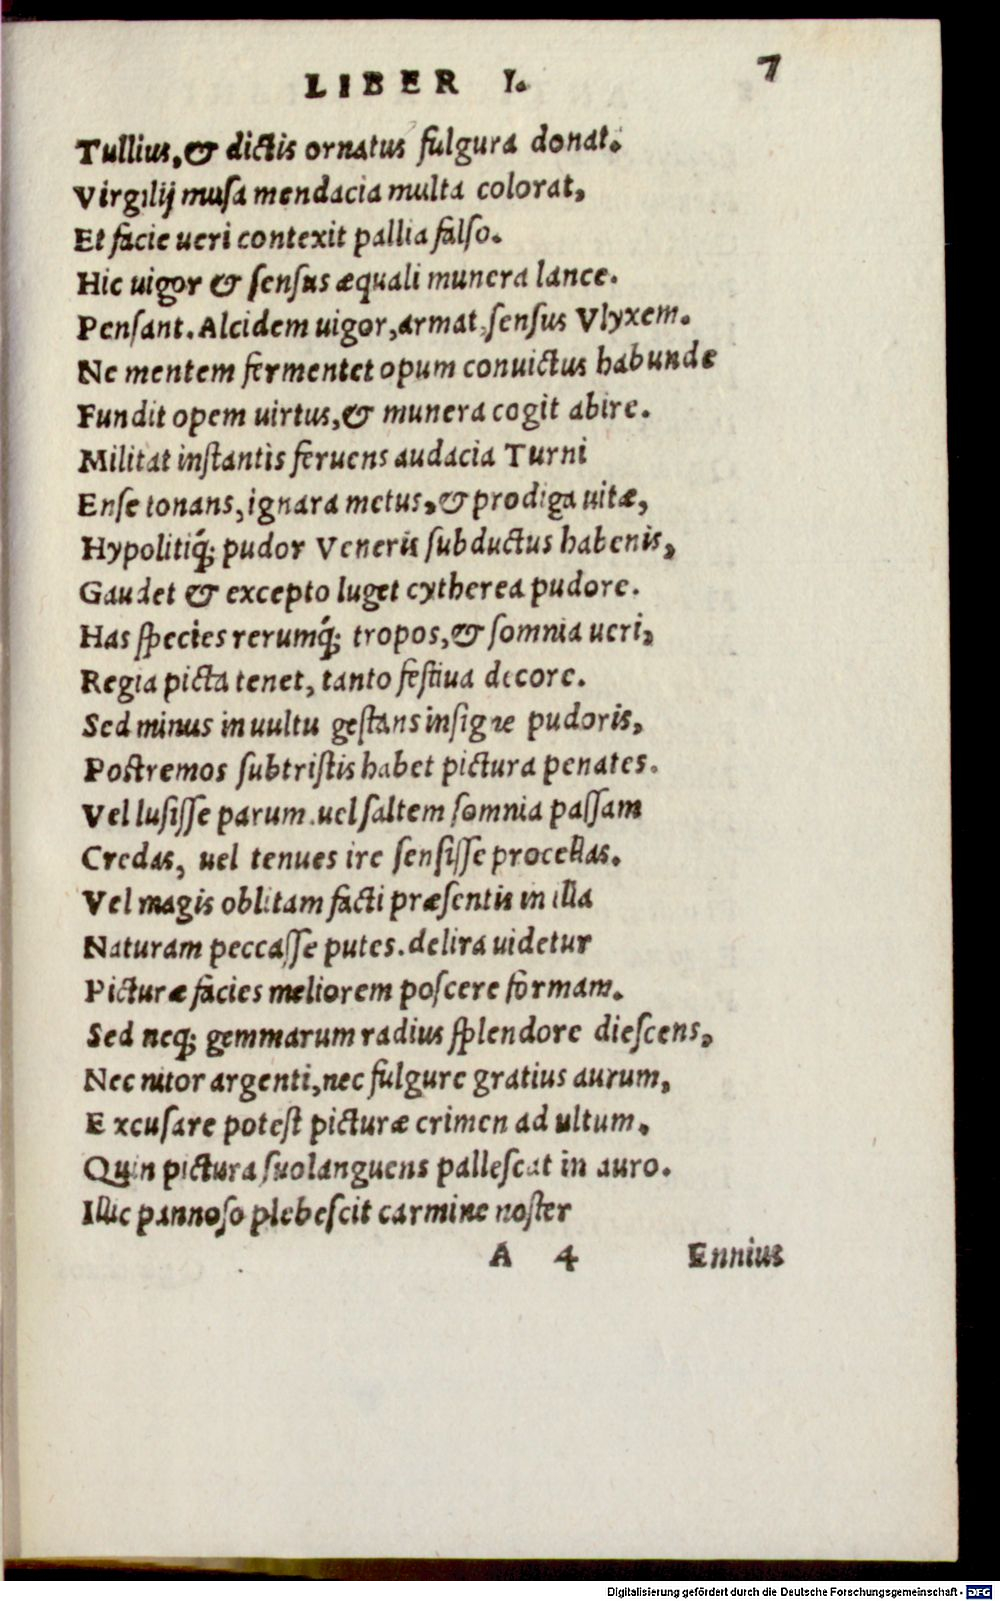 LIBER I. 7
Tullius, & dictis ornatus fulgura donat.
Virgilij musa mendacia multa colorat,
Et facie ueri contexit pallia falso.
Hic uigor & sensus æquali munera lance.
Pensant. Alcidem uigor, armat, sensus Vlyxem.
Ne mentem fermentet opum conuictus habundæ
Fundit opem uirtus, & munera cogit abire.
Militat instantis feruens audacia Turni
Ense tonans, ignara metus, & prodiga uitæ,
Hypolitiq́; pudor Veneris subductus habenis,
Gaudet & excepto luget cytherea pudore.
Has species rerumq́; tropos, & somnia ueri,
Regia picta tenet, tanto festiua decore.
Sed minus in uultu gestans insigne pudoris,
Postremos subtristis habet pictura penates.
Vel lusisse parum. uel saltem somnia passam
Credas, uel tenues ire sensisse procellas.
Vel magis oblitam facti præsentis in illa
Naturam peccasse putes. delira uidetur
Picturæ facies meliorem poscere formam.
Sed neq; gemmarum radius splendore diescens,
Nec nitor argenti, nec fulgure gratius aurum,
Excusare potest picturæ crimen ad ultum.
Quin pictura suo languens pallescat in auro.
Illic pannoso plebescit carmine noster
A 4 Ennius
Digitalisierung gefördert durch die Deutsche Forschungsgemeinschaft - DFG